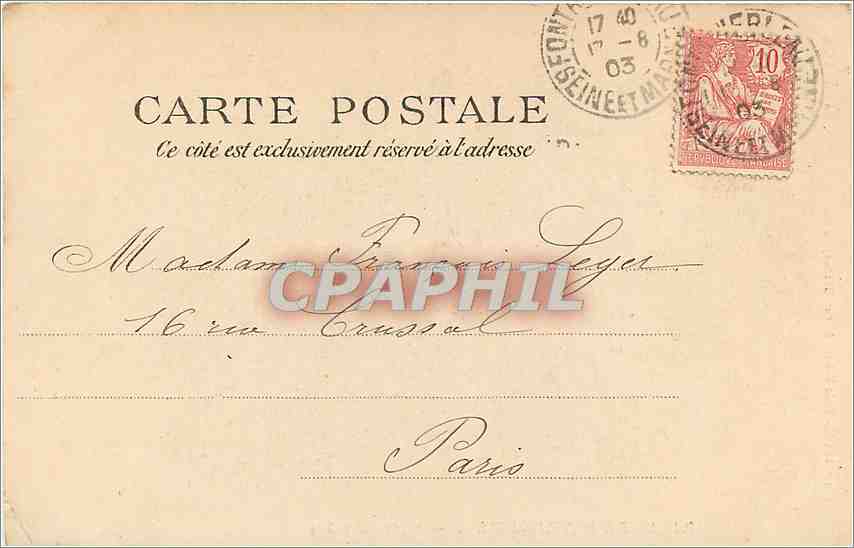 FONT
17 40
17 - 8
03
SEINE ET MARNE
10
03
SEINE ET MARNE
REPUBLIQUE FRANÇAISE
CARTE POSTALE
Ce côté est exclusivement réservé à l'adresse
Madame François Leyer
CPAPHIL
16 rue Crussol
Paris